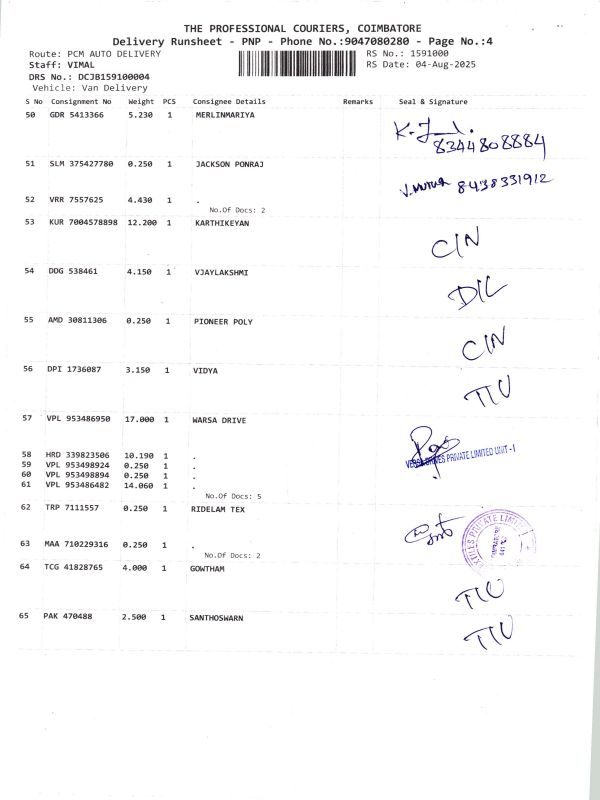 THE PROFESSIONAL COURIERS, COIMBATORE
Delivery Runsheet - PNP - Phone No.:9047080280 - Page No.:4
Route: PCM AUTO DELIVERY RS No.: 1591000
Staff: VIMAL RS Date: 04-Aug-2025
DRS No.: DCJB159100004
Vehicle: Van Delivery
S No Consignment No Weight PCS Consignee Details Remarks Seal & Signature
50 GDR 5413366 5.230 1 MERLINMARIYA
8344808884
51 SLM 375427780 0.250 1 JACKSON PONRAJ
8438331912
52 VRR 7557625 4.430 1 .
No.Of Docs: 2
53 KUR 7004578898 12.200 1 KARTHIKEYAN
CIN
54 DDG 538461 4.150 1 VJAYLAKSHMI
DIL
55 AMD 30811306 0.250 1 PIONEER POLY
CIN
56 DPI 1736087 3.150 1 VIDYA
TIU
57 VPL 953486950 17.000 1 WARSA DRIVE
PRIVATE LIMITED UNIT -I
58 HRD 339823506 10.190 1 .
59 VPL 953498924 0.250 1 .
60 VPL 953498894 0.250 1 .
61 VPL 953486482 14.060 1 .
No.Of Docs: 5
62 TRP 7111557 0.250 1 RIDELAM TEX
PRIVATE
63 MAA 710229316 0.250 1 .
No.Of Docs: 2
64 TCG 41828765 4.000 1 GOWTHAM
TIU
65 PAK 470488 2.500 1 SANTHOSWARN
TIU